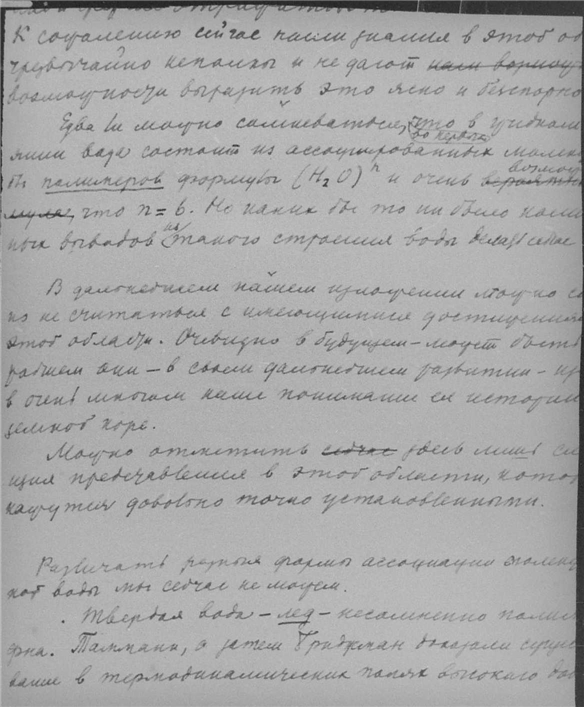 К сожалению сейчас наши знания в этой об
чрезвычайно неполны и не дают
возможности выразить это ясно и бесспорно
Едва ли можно сомневаться, что в жидком
во первых
вода состоит из ассоциированных молек
бы полимеров формулы (H₂O)ⁿ и очень
что n = 6. Но каких бы то ни было
ных выводов из такого строения воды делать сейчас
В дальнейшем нашем изложении можно со
но не считаться с имеющимися достижениями
этой области. Очевидно в будущем – может быть
– в своем дальнейшем развитии –
в очень многом наше понимание ее истории
земной коре.
Можно отметить сейчас здесь лишь сле
щия представления в этой области, котор
кажутся довольно точно установленными.
Различать разныя формы ассоциации молеку
ной воды мы сейчас не можем.
Твердая вода – лед – несомненно полим
рна. Тамманн, а затем Бриджман доказали сущес
вание в термодинамических полях высокого дав